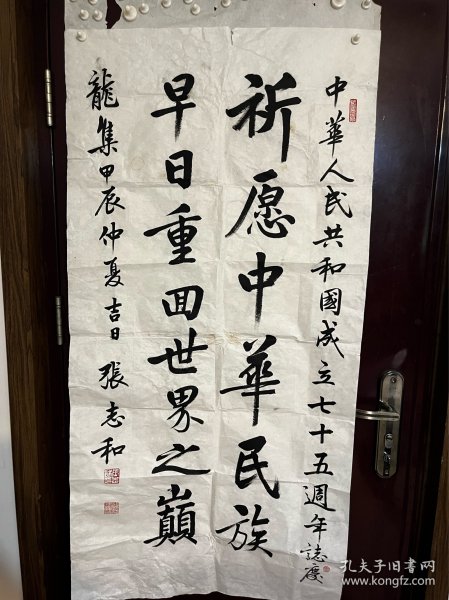 中華人民共和國成立七十五週年誌慶
祈愿中华民族
早日重回世界之巅
龍集甲辰仲夏吉日 張志和
孔夫子旧书网
www.kongfz.com